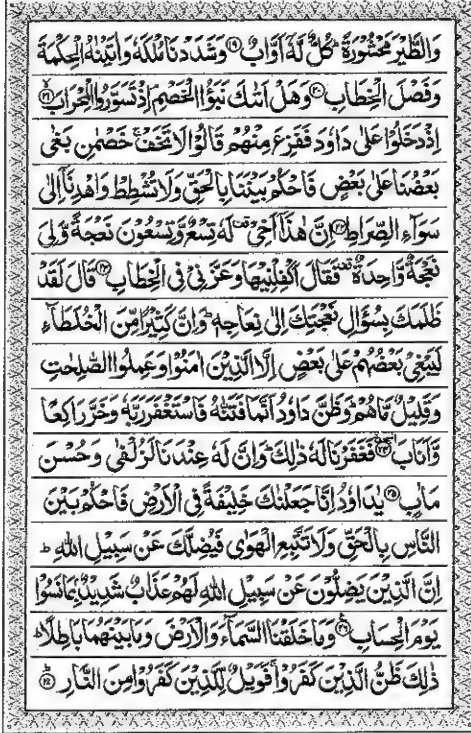 وَالطَّيْرَ مَحْشُوْرَةً ؕ كُلٌّ لَّهٗۤ اَوَّابٌ ﴿۱۹﴾ وَشَدَدْنَا مُلْكَهٗ وَاٰتَيْنٰهُ الْحِكْمَةَ
وَفَصْلَ الْخِطَابِ ﴿۲۰﴾ وَهَلْ اَتٰىكَ نَبَؤُا الْخَصْمِ ۘ اِذْ تَسَوَّرُوا الْمِحْرَابَ ﴿۲۱﴾
اِذْ دَخَلُوْا عَلٰى دَاوٗدَ فَفَزِعَ مِنْهُمْ قَالُوْا لَا تَخَفْ ۚ خَصْمٰنِ بَغٰى
بَعْضُنَا عَلٰى بَعْضٍ فَاحْكُمْ بَيْنَنَا بِالْحَقِّ وَلَا تُشْطِطْ وَاهْدِنَاۤ اِلٰى
سَوَآءِ الصِّرَاطِ ﴿۲۲﴾ اِنَّ هٰذَاۤ اَخِىْ ۟ لَهٗ تِسْعٌ وَّتِسْعُوْنَ نَعْجَةً وَّلِىَ
نَعْجَةٌ وَّاحِدَةٌ ۟ فَقَالَ اَكْفِلْنِيْهَا وَعَزَّنِىْ فِى الْخِطَابِ ﴿۲۳﴾ قَالَ لَقَدْ
ظَلَمَكَ بِسُؤَالِ نَعْجَتِكَ اِلٰى نِعَاجِهٖ ؕ وَاِنَّ كَثِيْرًا مِّنَ الْخُلَطَآءِ
لَيَبْغِىْ بَعْضُهُمْ عَلٰى بَعْضٍ اِلَّا الَّذِيْنَ اٰمَنُوْا وَعَمِلُوا الصّٰلِحٰتِ
وَقَلِيْلٌ مَّا هُمْ ؕ وَظَنَّ دَاوٗدُ اَنَّمَا فَتَنّٰهُ فَاسْتَغْفَرَ رَبَّهٗ وَخَرَّ رَاكِعًا
وَّاَنَابَ ﴿۲۴﴾ فَغَفَرْنَا لَهٗ ذٰلِكَ ؕ وَاِنَّ لَهٗ عِنْدَنَا لَزُلْفٰى وَحُسْنَ
مَاٰبٍ ﴿۲۵﴾ يٰدَاوٗدُ اِنَّا جَعَلْنٰكَ خَلِيْفَةً فِى الْاَرْضِ فَاحْكُمْ بَيْنَ
النَّاسِ بِالْحَقِّ وَلَا تَتَّبِعِ الْهَوٰى فَيُضِلَّكَ عَنْ سَبِيْلِ اللّٰهِ ؕ
اِنَّ الَّذِيْنَ يَضِلُّوْنَ عَنْ سَبِيْلِ اللّٰهِ لَهُمْ عَذَابٌ شَدِيْدٌۢ بِمَا نَسُوْا
يَوْمَ الْحِسَابِ ﴿۲۶﴾ وَمَا خَلَقْنَا السَّمَآءَ وَالْاَرْضَ وَمَا بَيْنَهُمَا بَاطِلًا ؕ
ذٰلِكَ ظَنُّ الَّذِيْنَ كَفَرُوْا ۚ فَوَيْلٌ لِّلَّذِيْنَ كَفَرُوْا مِنَ النَّارِ ﴿۲۷﴾